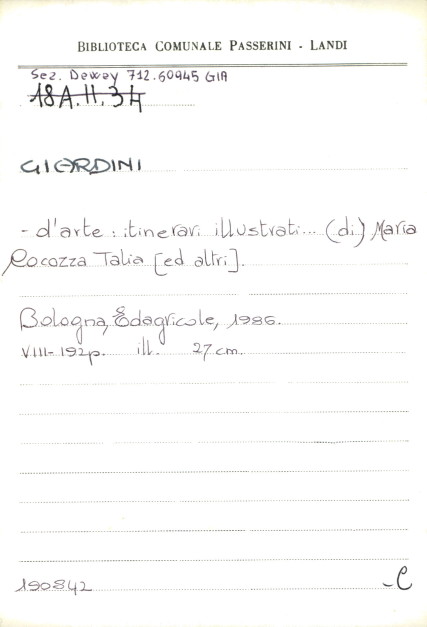 BIBLIOTECA COMUNALE PASSERINI - LANDI
Sez. Dewey 712.60945 GIA
18A.H.34
GIARDINI
- d'arte : itinerari illustrati... (di) Maria
Cocozza Talia [ed altri].
Bologna, Edagricole, 1986.
VIII-192p. ill. 27 cm.
190842
-C